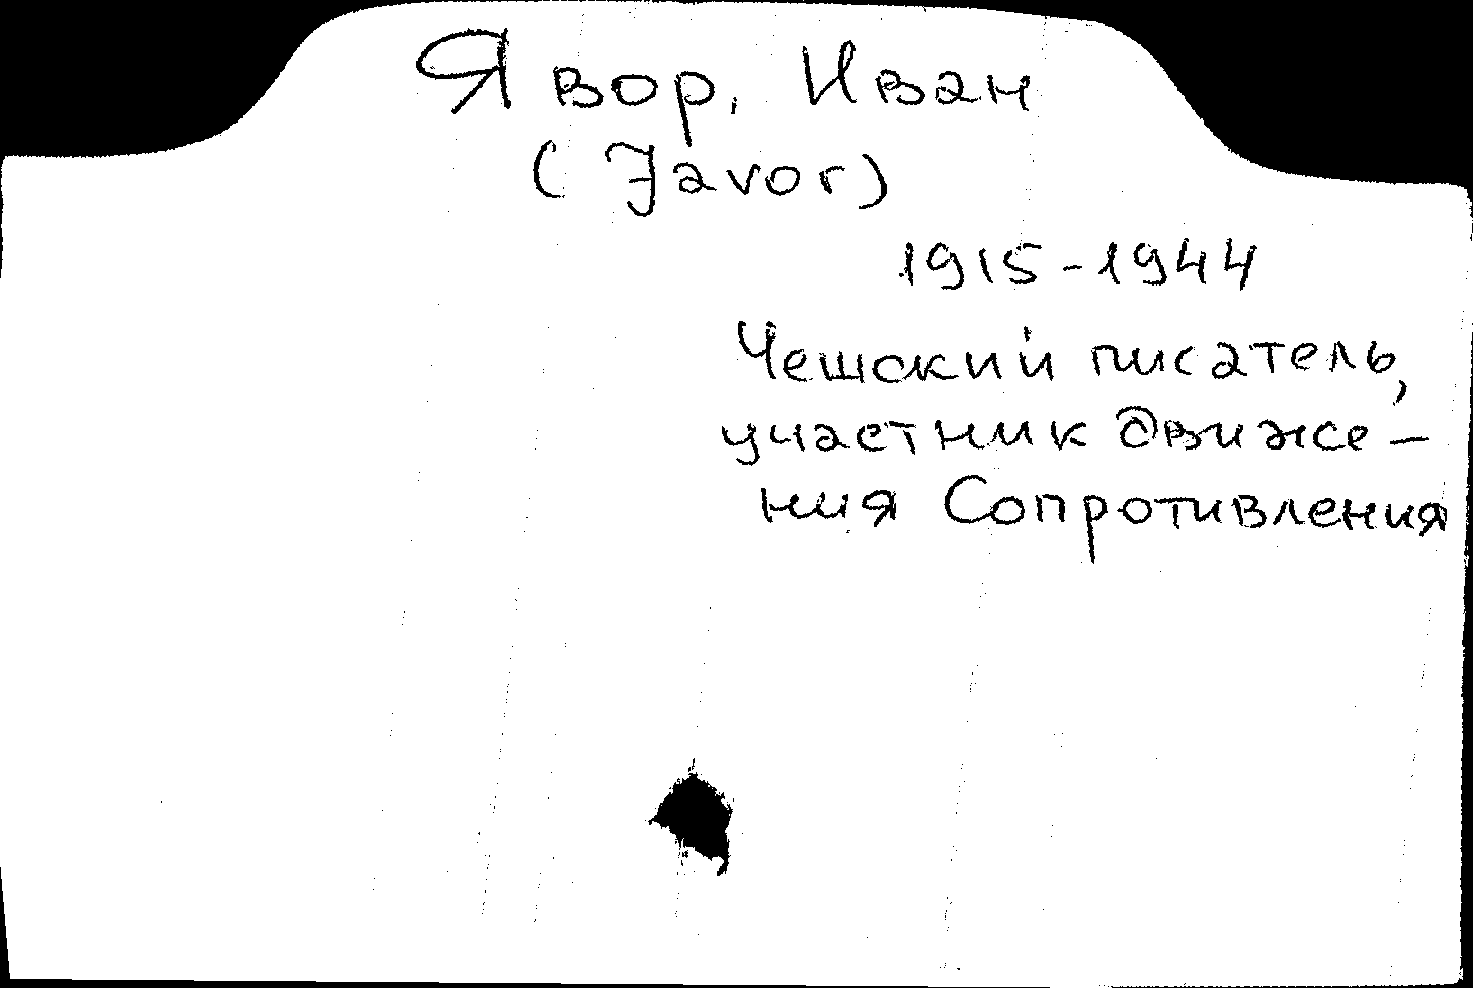 Явор, Иван
(Javor)
1915-1944
Чешский писатель,
участник движе-
ния Сопротивления